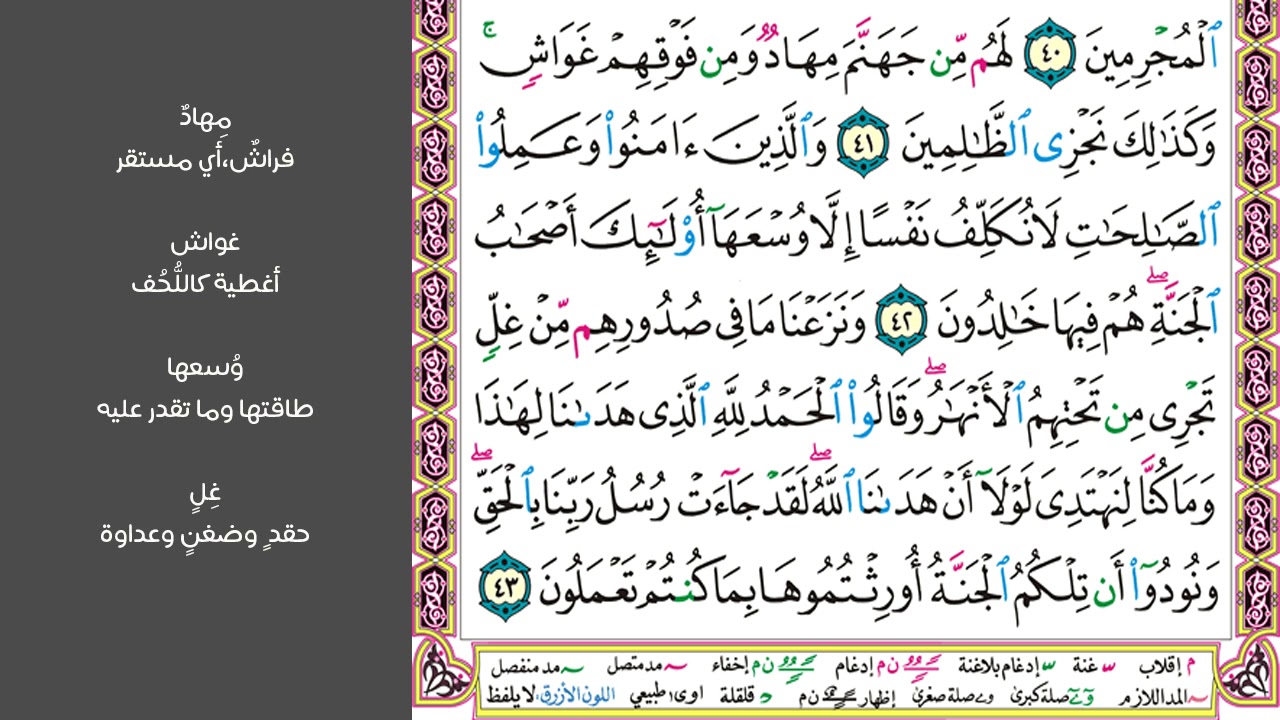 ٱلْمُجْرِمِينَ ٤٠ لَهُم مِّن جَهَنَّمَ مِهَادٌ وَمِن فَوْقِهِمْ غَوَاشٍ ۚ
وَكَذَٰلِكَ نَجْزِى ٱلظَّٰلِمِينَ ٤١ وَٱلَّذِينَ ءَامَنُوا۟ وَعَمِلُوا۟
ٱلصَّٰلِحَٰتِ لَا نُكَلِّفُ نَفْسًا إِلَّا وُسْعَهَآ أُو۟لَٰٓئِكَ أَصْحَٰبُ
ٱلْجَنَّةِ ۖ هُمْ فِيهَا خَٰلِدُونَ ٤٢ وَنَزَعْنَا مَا فِى صُدُورِهِم مِّنْ غِلٍّ
تَجْرِى مِن تَحْتِهِمُ ٱلْأَنْهَٰرُ ۖ وَقَالُوا۟ ٱلْحَمْدُ لِلَّهِ ٱلَّذِى هَدَىٰنَا لِهَٰذَا
وَمَا كُنَّا لِنَهْتَدِىَ لَوْلَآ أَنْ هَدَىٰنَا ٱللَّهُ ۖ لَقَدْ جَآءَتْ رُسُلُ رَبِّنَا بِٱلْحَقِّ ۖ
وَنُودُوٓا۟ أَن تِلْكُمُ ٱلْجَنَّةُ أُورِثْتُمُوهَا بِمَا كُنتُمْ تَعْمَلُونَ ٤٣
م إقلاب ـس غنة ـس إدغام بلاغنة ن م إدغام ن م إخفاء ـ مد متصل ـ مد منفصل
ـ المد اللازم و ے صلة كبرى و ے صلة صغرى إظهار ن م د قلقلة اوى ا طبيعي اللون الأزرق: لا يلفظ
مِهادٌ
فراشٌ،أي مستقر
غواش
أغطية كاللُّحُف
وُسعها
طاقتها وما تقدر عليه
غِلٍ
حقدٍ وضغنٍ وعداوة